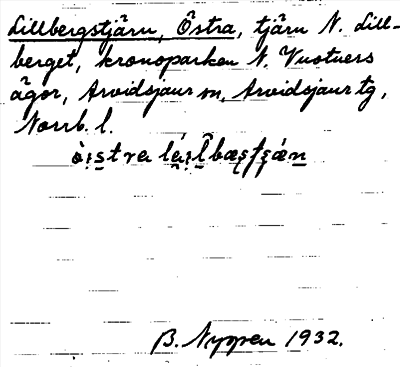 Lillbergstjärn, Östra, tjärn N. Lill-
berget, kronoparken N. Vuotners
ägor, Arvidsjaur sn, Arvidsjaur tg,
Norrb. l.
B. Nyppen 1932.